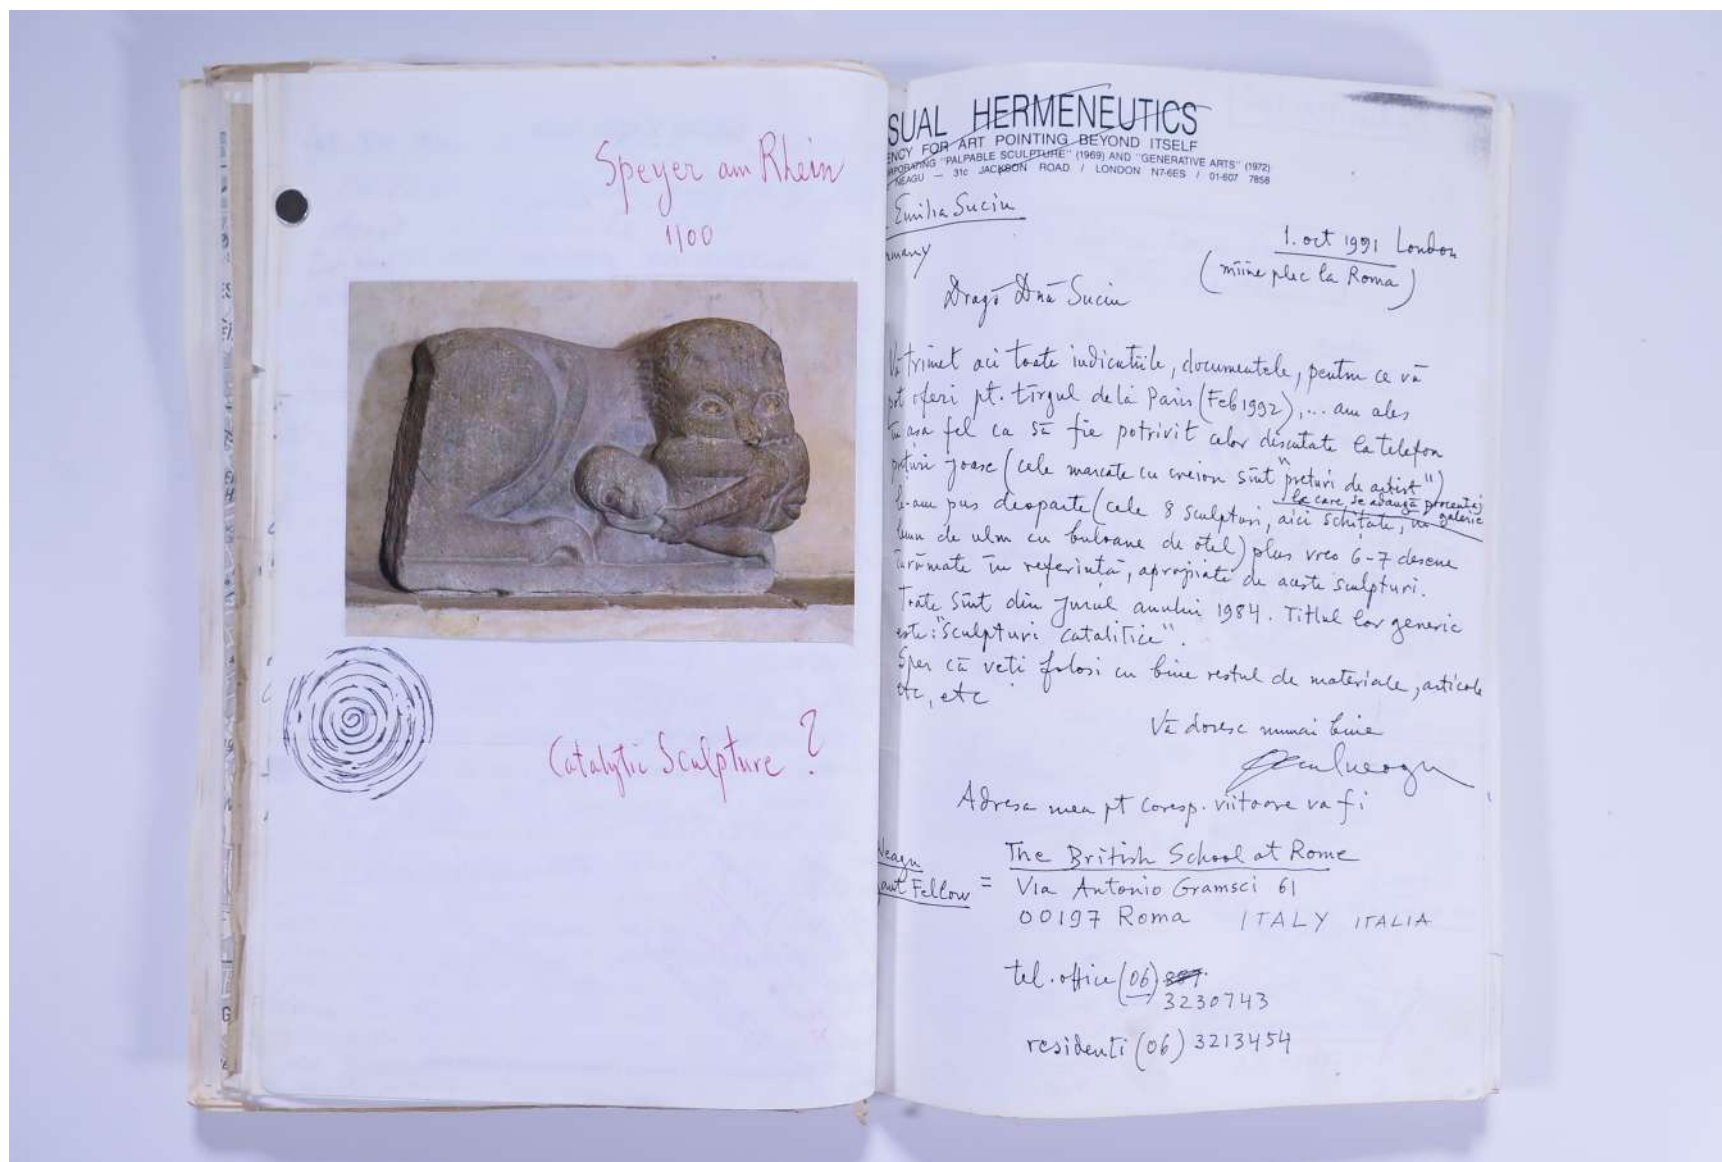 Speyer am Rhein
1100
Catalytic Sculpture ?
SUAL HERMENEUTICS
ENCY FOR ART POINTING BEYOND ITSELF
RPORATING "PALPABLE SCULPTURE" (1969) AND "GENERATIVE ARTS" (1972)
NEAGU — 31c JACKSON ROAD / LONDON N7-6ES / 01-607 7858
Emilia Suciu
rmany
1. oct 1991 London
(mîine plec la Roma)
Dragă Dnă Suciu
Vă trimet aci toate indicatiile, documentele, pentru ce vă
pot oferi pt. tîrgul de la Paris (Feb 1992), ... am ales
în asa fel ca să fie potrivit celor discutate la telefon
prețuri joase (cele marcate cu creion sînt "preturi de artist")
la care se adaugă procentaj galerie
le-am pus deoparte (cele 8 sculpturi, aici schițate, în
lemn de ulm cu buloane de otel) plus vreo 6-7 desene
în referintă, apropiate de aceste sculpturi.
Toate sînt din jurul anului 1984. Titlul lor generic
este: "Sculpturi catalitice".
Sper că veti folosi cu bine restul de materiale, articole
etc, etc
Vă doresc numai bine
Adresa mea pt coresp. viitoare va fi
Neagu
Fellow =
The British School at Rome
Via Antonio Gramsci 61
00197 Roma ITALY ITALIA
tel. office (06)
3230743
residenti (06) 3213454